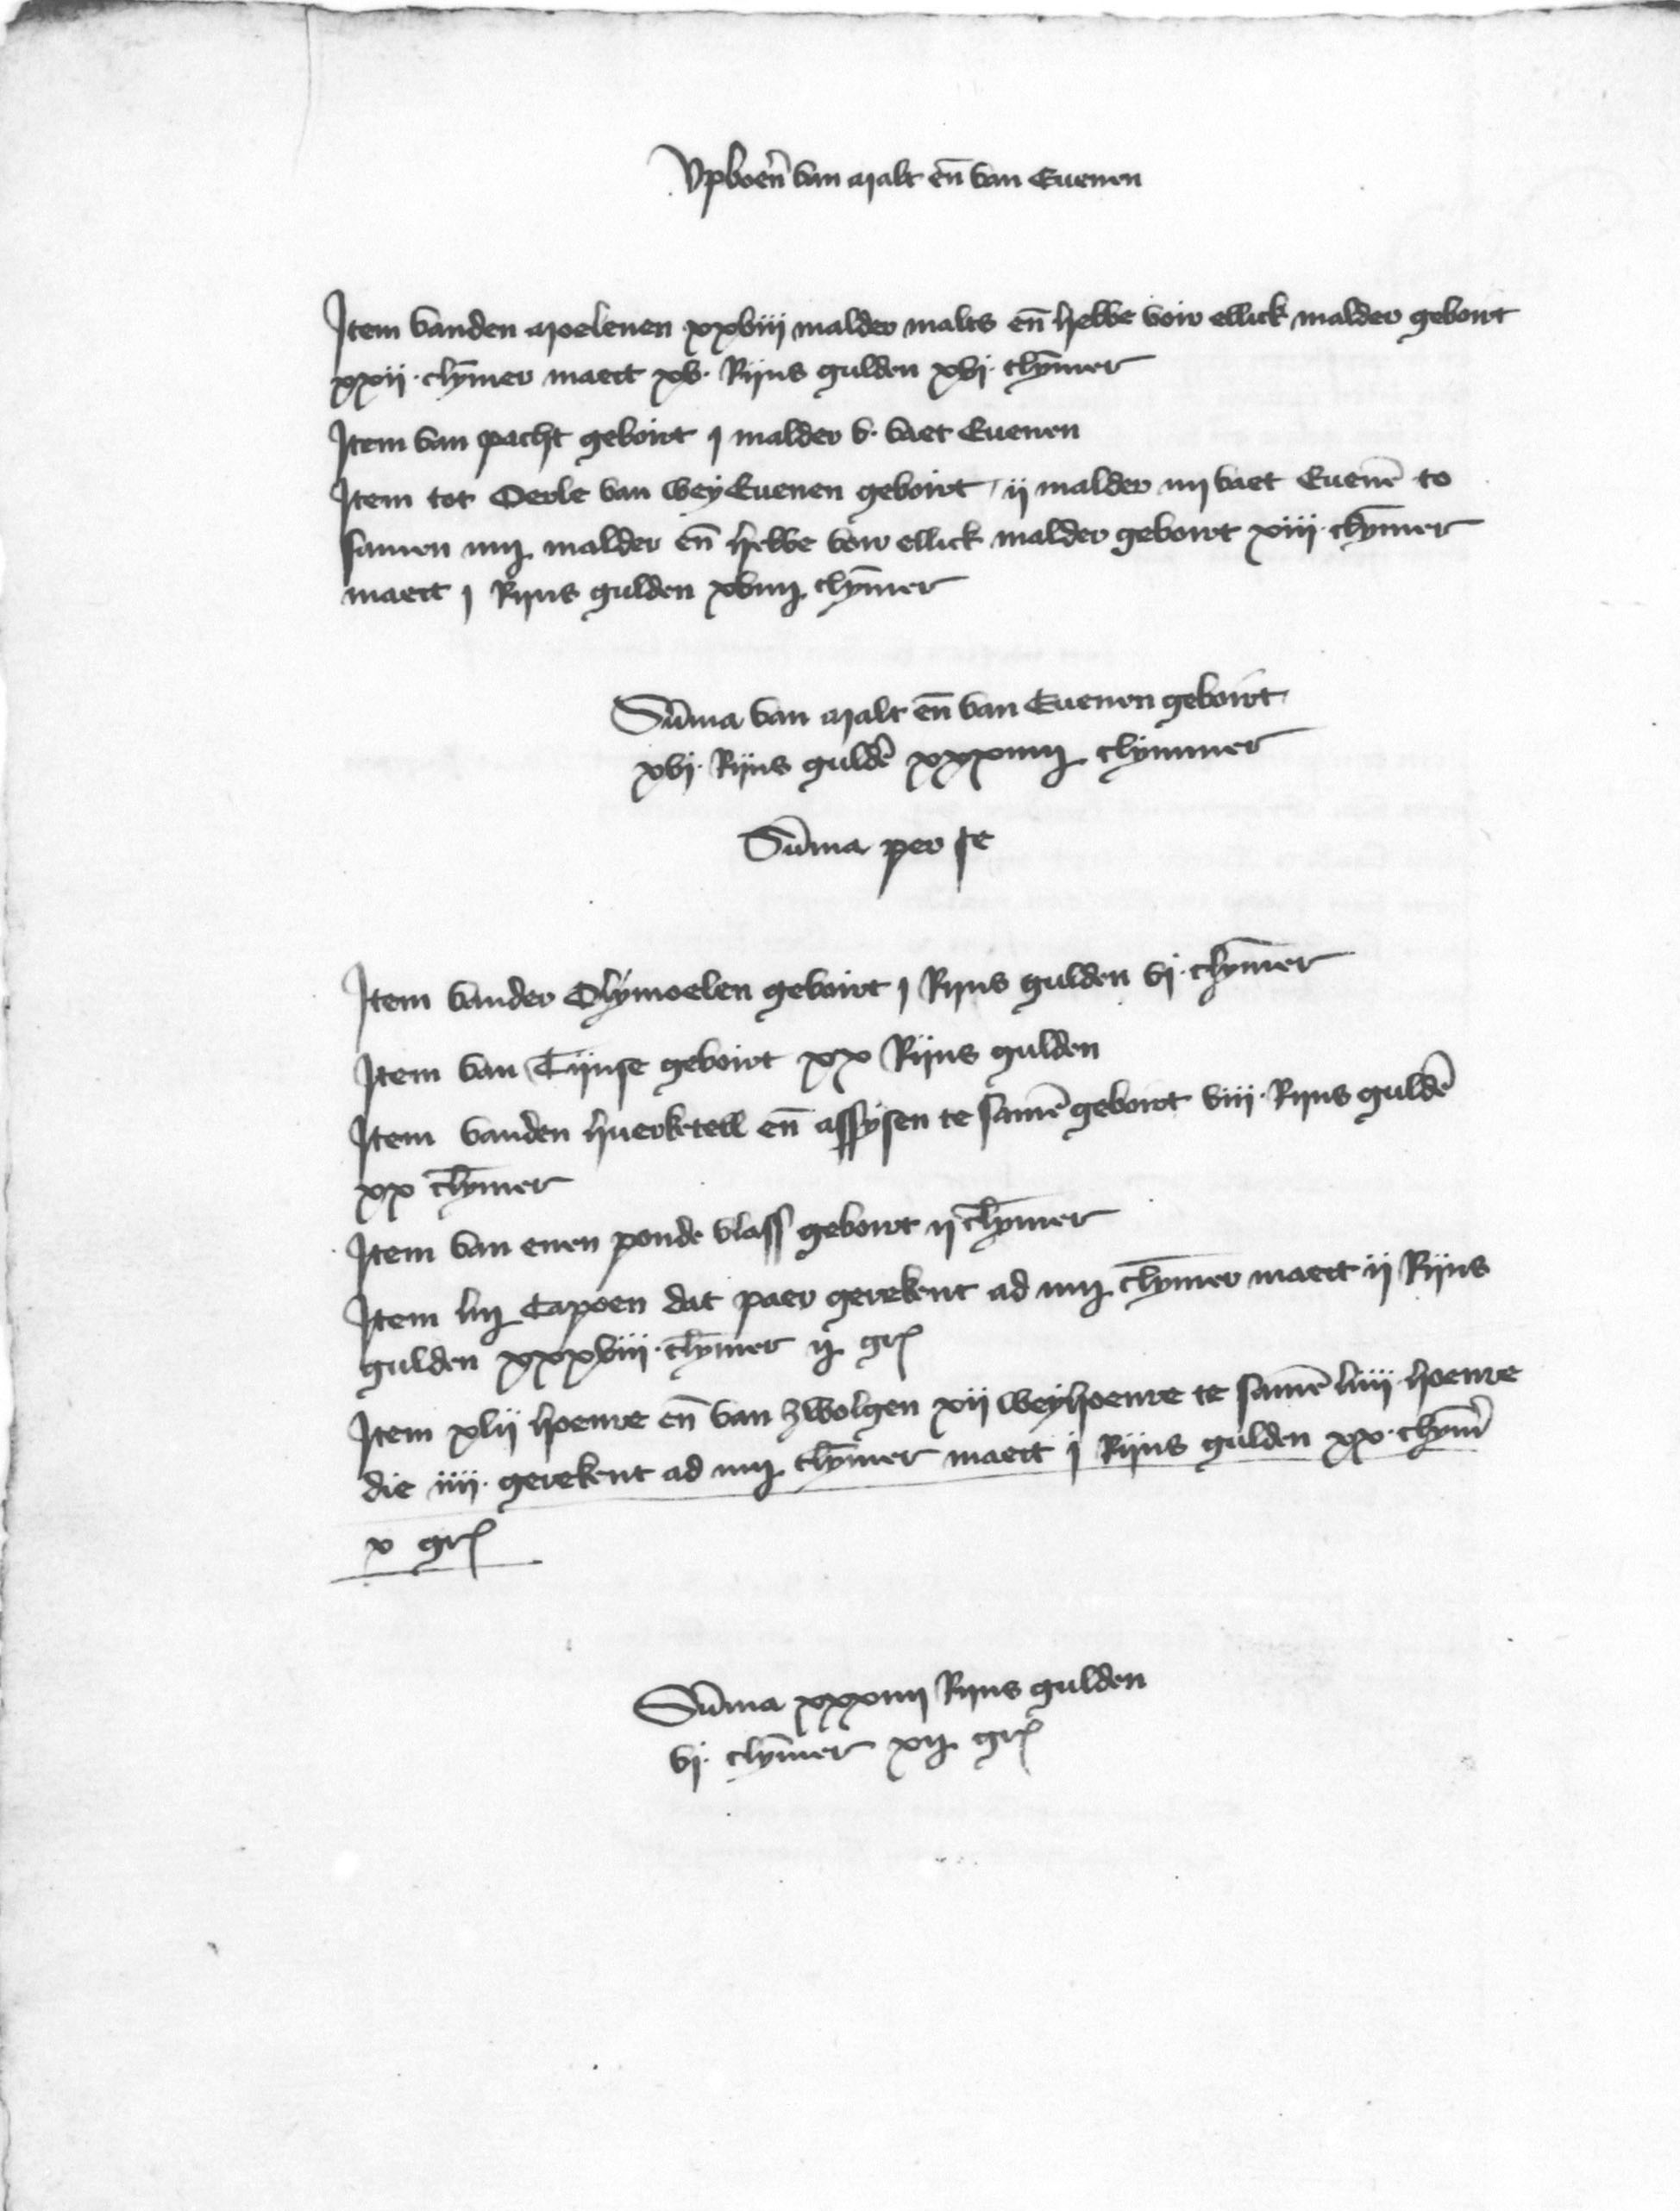 Vpboen̄ van Malt en̄ van Euenen
Item vanden Moelenen xxviii malder malts en̄ hebbe voir ellick malder geboirt
xxii · clȳmer maect xv · Rijns gulden xvi · clȳmer
Item van pacht geboirt j malder v · vaet Euenen
Item tot Oerle van weyEuenen geboirt ij malder iij vaet Euenē to
samen iiij½ malder en̄ hebbe voir ellick malder geboirt xiii · clȳmer
maect j Rijns gulden xviij½ clȳmer
Sūma van Malt en̄ van Euenen geboirt
xvj · Rijns guldē xxxiiij½ clijmmer
Sūma per se
Item vander Olymoelen geboirt j Rijns gulden vj · clȳmer
Item van Tijnse geboirt xx Rijns gulden
Item vanden huerketell en̄ assysen te samē geboirt viii · Rijns guldē
xx clȳmer
Item van enen ponde vlass geboirt ij clȳmer
Item lij½ Capoen dat paer gerekent ad iiij½ clȳmer maect ij Rijns
gulden xxxviii · clȳmer ij½ gr̄
Item xlij hoenre en̄ van zwolgen xii weyhoenre te samē liiij · hoenre
die iiij · gerekent ad iiij½ clȳmer maect j Rijns gulden xx · clȳm̄
x gr̄
Sūma xxxiiij Rijns gulden
vj · clȳmer xij½ gr̄